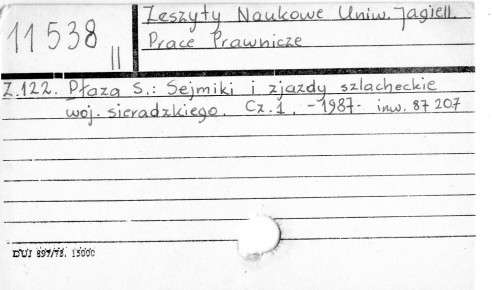 11 538 II
Zeszyty Naukowe Uniw. Jagiell.
Prace Prawnicze
Z.122. Płaza S.: Sejmiki i zjazdy szlacheckie
woj. sieradzkiego. Cz.1. -1987- inw. 87 207
DUJ 897/78. 15000